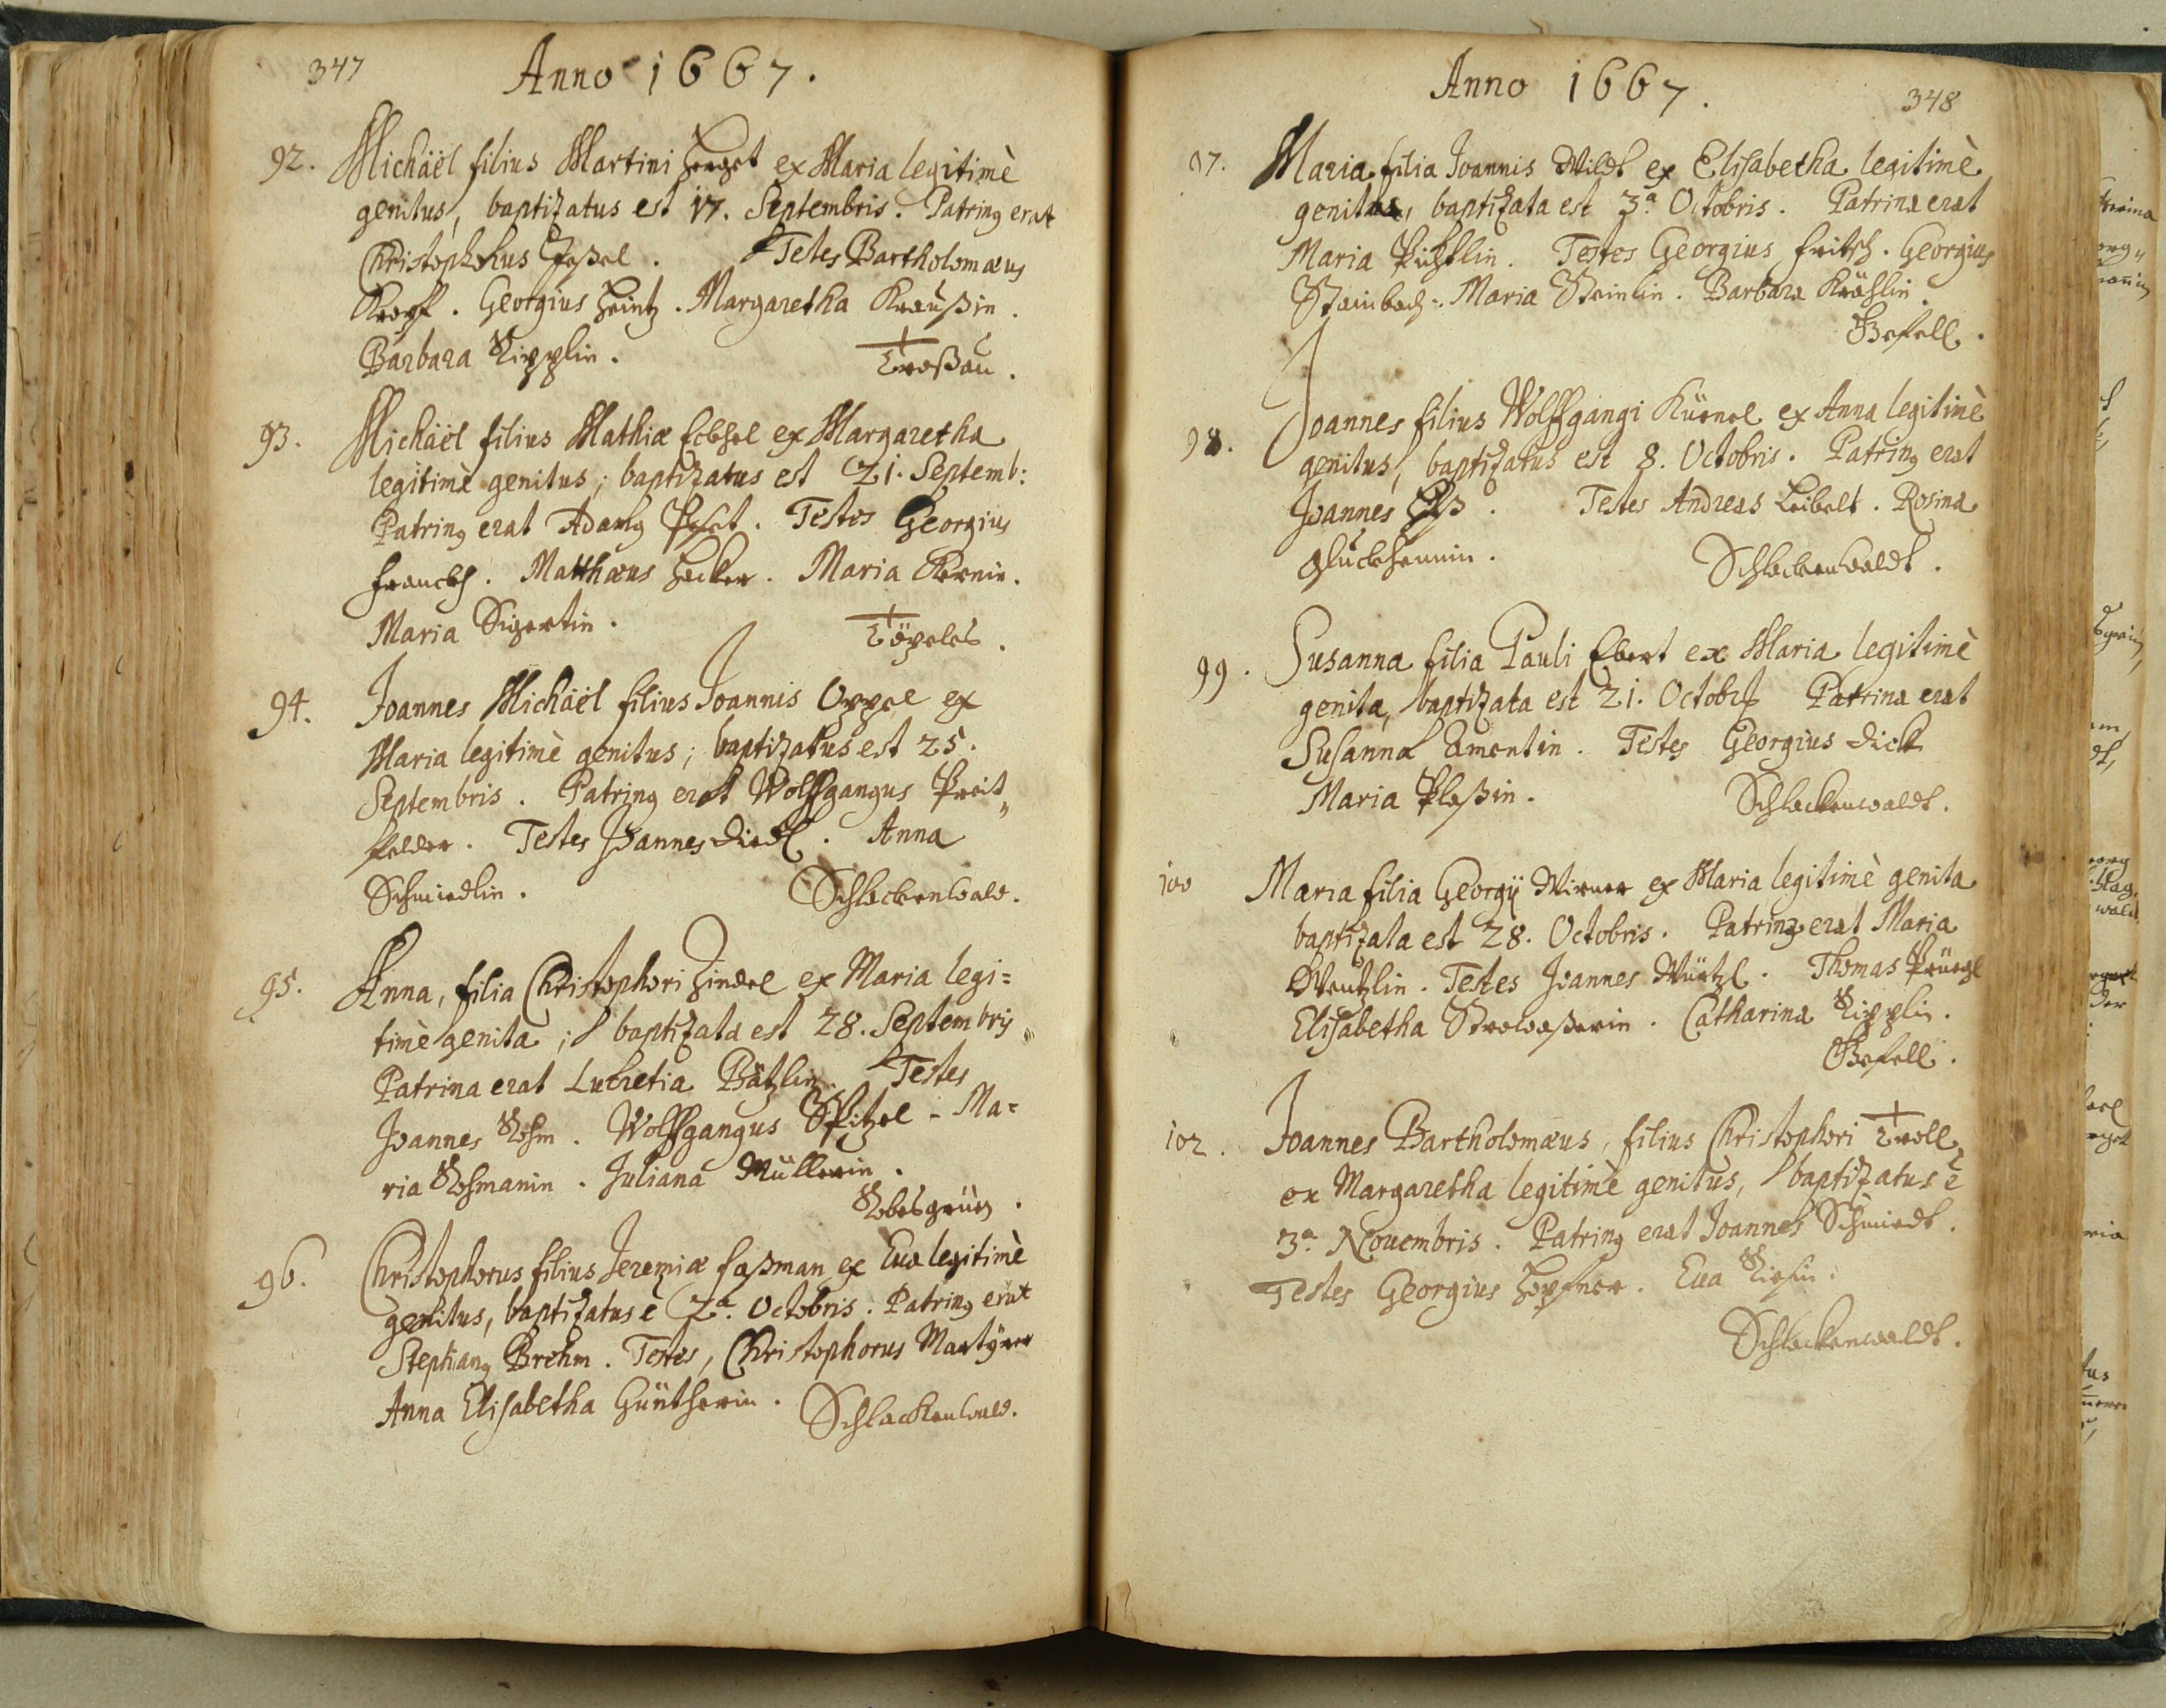 347
Anno 1667.
92. Michaël filius Martini Herget ex Maria legitimè
genitus, baptizatus est 17. Septembris. Patrinꝯ erat
Christophorus Heßel. Testes Bartholomæus
Kropf. Georgius Heintz. Margaretha Kraußin.
Barbara Kipplin. Troßau.
93. Michaël filius Mathiæ ex Margaretha
legitimè genitus; baptizatus est 21. Septemb:
Patrinꝯ erat Adamꝯ. Testes Georgius
Franckh. Matthæus Hecker. Maria Kernin.
Maria Sigertin. Töpeles.
94. Joannes Michaël filius Joannis Oppel ex
Maria legitimè genitus; baptizatus est 25.
Septembris. Patrinꝯ erat Wolffgangus Preit„
felder. Testes Joannes Diedl. Anna
Schmiedlin. Schlackenwald.
95. Anna, filia Christophori Zindel ex Maria legi=
timè genita; baptizata est 28. Septembris
Patrina erat Lucretia Bätzlin. Testes
Joannes Rohm. Wolffgangus Spitzel. Ma=
ria Rohmanin. Juliana Müllerin.
Robesgrün.
96. Christophorus filius Jeremiæ Faßman ex Eva legitimè
genitus, baptizatus ē 2ª. Octobris. Patrinꝯ erat
Stephanꝯ Brehm. Testes, Christophorus Martÿrer
Anna Elisabetha Güntherin. Schlackenwald.
Anno 1667.
348
97. Maria filia Joannis Wildt ex Elisabetha legitimè
genita, baptizata est 3ª. Octobris. Patrina erat
Maria Püchlin. Testes Georgius Fritsch. Georgius
Stainbach. Maria Steinlin. Barbara Kröhlin.
Gefell.
98. Joannes filius Wolffgangi Kürnel ex Anna legitimè
genitus, baptizatus est 8. Octobris. Patrinꝯ erat
Joannes. Testes Andreas Leibelt. Rosina
Glückhennin. Schlackenwaldt.
99. Susanna filia Pauli Ebert ex Maria legitimè
genita, baptizata est 21. Octobris Patrina erat
Susanna Amentin. Testes Georgius Dick
Maria Ploßin. Schlackenwaldt.
100 Maria filia Georgÿ Wirner ex Maria legitimè genita
baptizata est 28. Octobris. Patrina erat Maria
Wentzlin. Testes Joannes Würtzl. Thomas Prüegl
Elisabetha Strowaßerin. Catharina Kipplin.
Gefell.
102. Joannes Bartholomæus, filius Christophori Troll,
ex Margaretha legitimè genitus, baptizatus ē
3ª. Novembris. Patrinꝯ erat Joannes Schmiedt.
Testes Georgius Höpfner. Eua.
Schlackenwaldt.